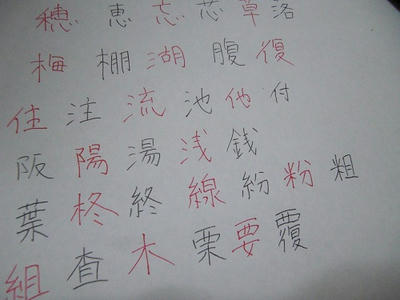 穂 恵 忘 芯 草 落
梅 棚 湖 腹 復
住 注 流 池 他 付
阪 陽 湯 浅 銭
葉 柊 終 線 紛 粉 粗
組 査 木 栗 要 覆